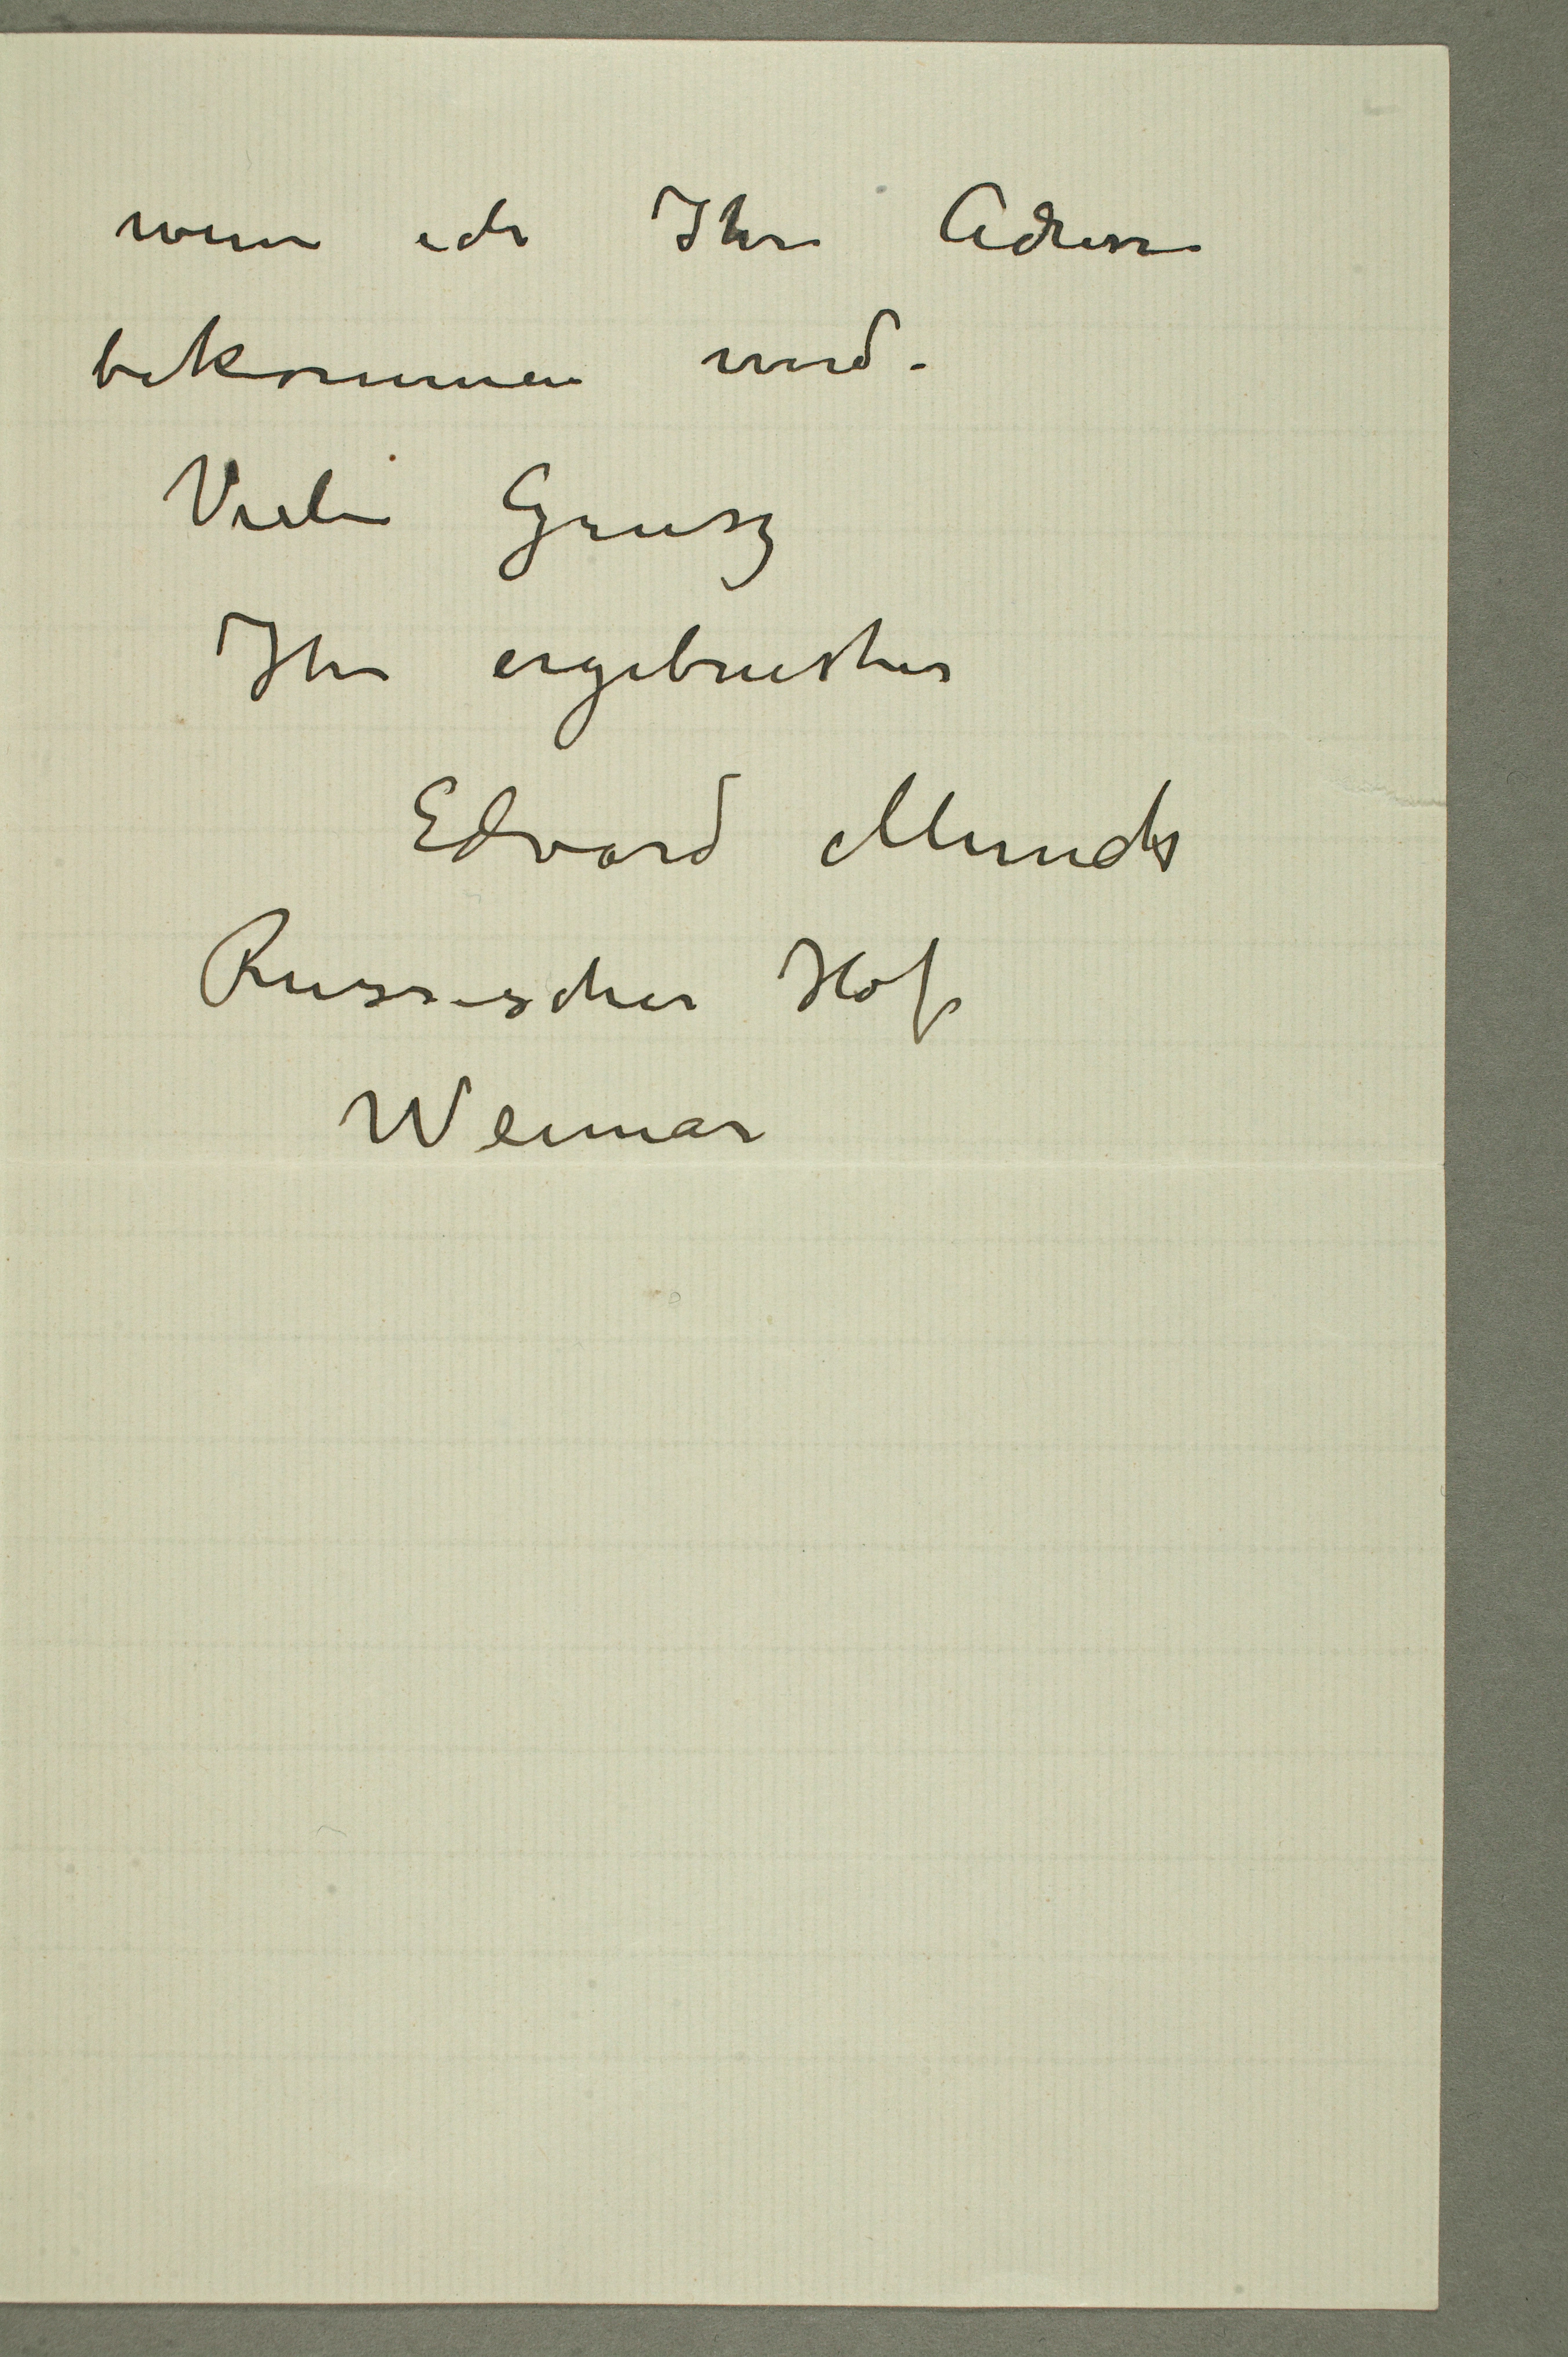 wenn ich Ihre Adresse
bekommen werd.
Viele Grusz
Ihr ergebnester
Edvard Munch
Russischer Hof
Weimar